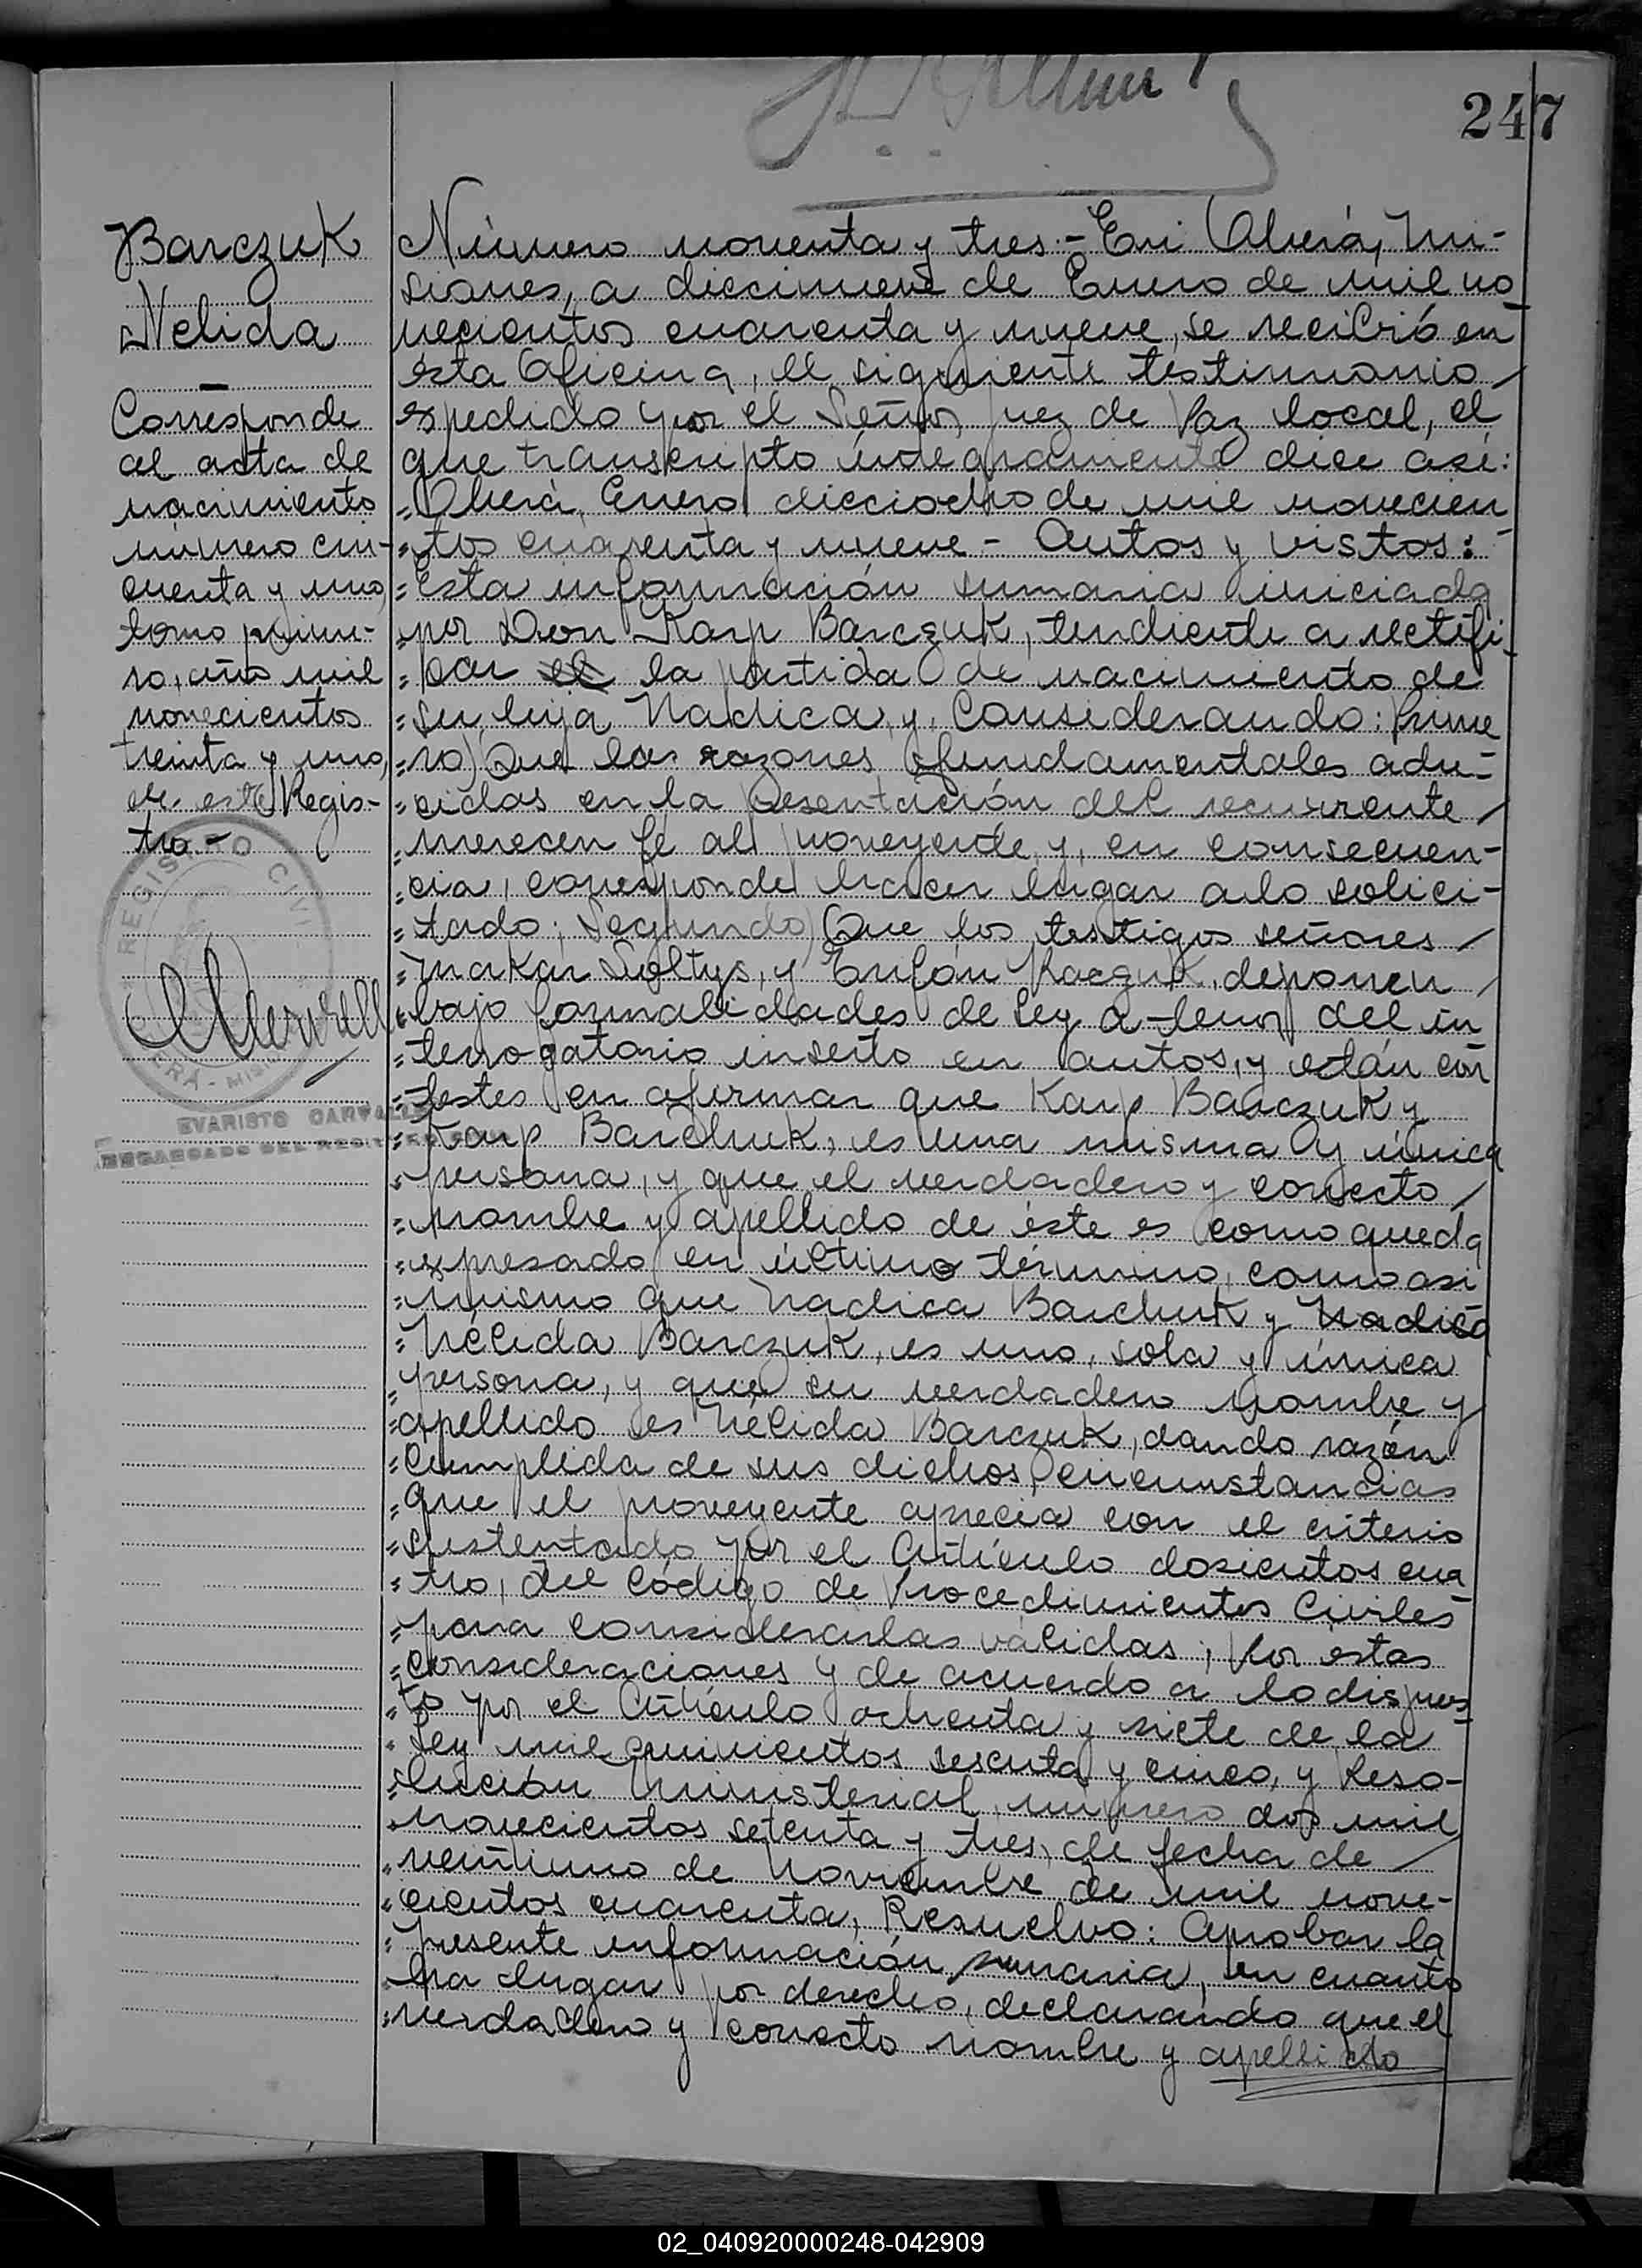 247
Barczuk
Nelida
Corresponde
al acta de
nacimiento
número cin-
cuenta y uno,
tomo prime-
ro, año mil
novecientos
treinta y uno,
de este Regis-
tro -
REGISTRO CIVI
OBERÁ - MISI
EVARISTO CARVALL
ENCARGADO DEL REGISTRO CIVIL
Número noventa y tres:- En Oberá, Mi-
siones, a diecinueve de Enero de mil no
vecientos cuarenta y nueve, se recibió en
esta Oficina, el siguiente testimonio
expedido por el Señor Juez de Paz local, el
que transcripto íntegramente dice así:
"Oberá, Enero dieciocho de mil novecien
"tos cuarenta y nueve - Autos y vistos:
"Esta información sumaria iniciada
"por Don Karp Barczuk, tendiente a rectifi
"car el la partida de nacimiento de
"su hija Nadica, y, Considerando: Prime
"ro) Que las razones fundamentales adu-
"cidas en la presentación del recurrente
"merecen fe al proveyente, y, en consecuen-
"cia, corresponde hacer lugar a lo solici-
"tado; Segundo) Que los testigos señores
"Makar Soltys, y Kaczuk, deponen
"bajo formalidades de ley a tenor del in
"terrogatorio inserto en autos, y están con
"testes en afirmar que Karp Barczuk y
"Karp Barchuk, es una misma y única
"persona, y que el verdadero y correcto
"nombre y apellido de éste es como queda
"expresado en último término, como asi
"mismo que Nadica Barchuk y Nadica
"Nélida Barczuk, es uno, sola y única
"persona, y que su verdadero nombre y
"apellido es Nélida Barczuk, dando razón
"cumplida de sus dichos, circunstancias
"que el proveyente aprecia con el criterio
"sustentado por el Artículo doscientos cua
"tro, del Código de Procedimientos Civiles
"para considerarlas válidas; Por estas
"consideraciones y de acuerdo a lo dispues
"to por el Artículo ochenta y siete de la
"Ley mil quinientos sesenta y cinco, y Reso-
"lución Ministerial número dos mil
"novecientos setenta y tres, de fecha de
"veintiuno de Noviembre de mil nove-
"cientos cuarenta, Resuelvo: Aprobar la
"presente información sumaria, en cuanto
"ha lugar por derecho, declarando que el
"verdadero y correcto nombre y apellido
02_040920000248-042909